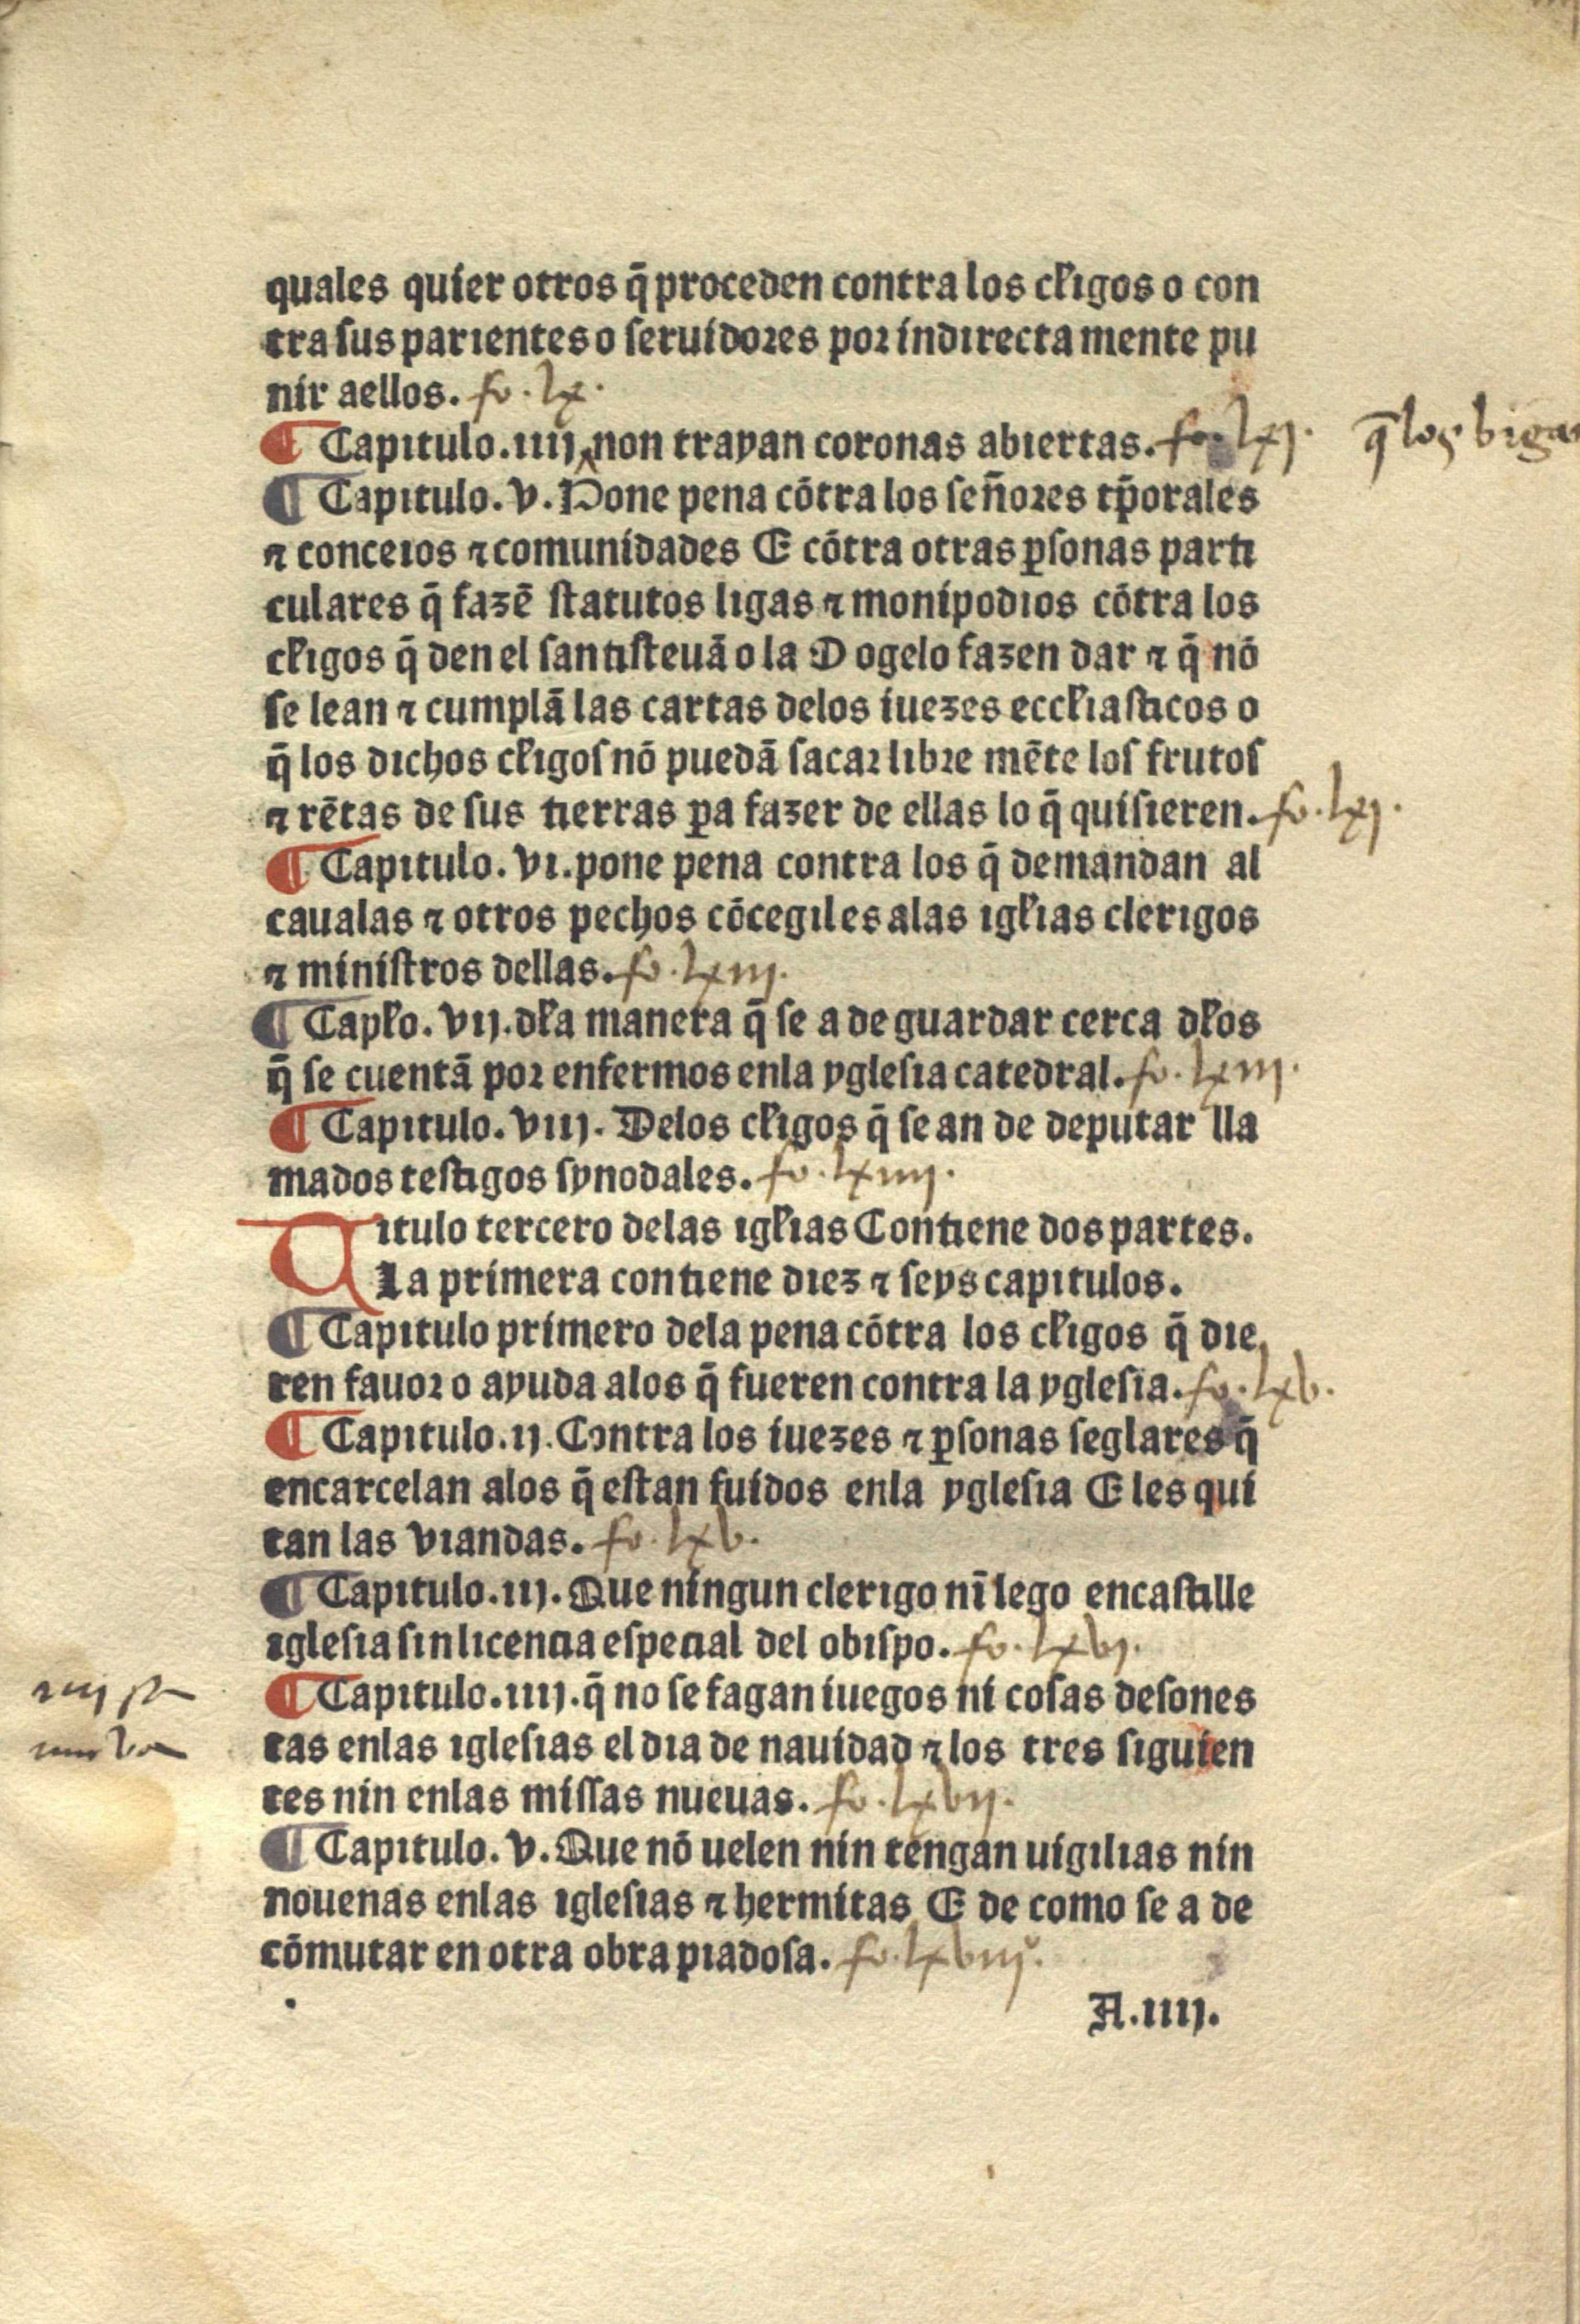 quales quier otros q̄ proceden contra los cl̄igos o con
tra sus parientes o seruidores por indirecta mente pu
nir aellos. fo. lx.
¶ Capitulo. iiij ‸ non trayan coronas abiertas. fo. lxj. q̄ los bigam
¶ Capitulo. v. Pone pena cōtra los señores tp̄orales
⁊ conceios ⁊ comunidades E cōtra otras ꝑsonas parti
culares q̄ fazē statutos ligas ⁊ monipodios cōtra los
cl̄igos q̄ den el santisteuā o la D ogelo fazen dar ⁊ q̄ nō
se lean ⁊ cumplā las cartas delos iuezes eccl̄iasticos o
q̄ los dichos cl̄igos nō puedā sacar libre mēte los frutos
⁊ rētas de sus tierras ꝑa fazer de ellas lo q̄ quisieren. fo. lxj.
¶ Capitulo. vi. pone pena contra los q̄ demandan al
caualas ⁊ otros pechos cōcegiles alas igl̄ias clerigos
⁊ ministros dellas. fo. lxiij.
¶ Capl̄o. vij. dl̄a manera q̄ se a de guardar cerca dl̄os
q̄ se cuentā por enfermos enla yglesia catedral. fo. lxiij.
¶ Capitulo. viij. Delos cl̄igos q̄ se an de deputar lla
mados testigos synodales. fo. lxiiij.
Titulo tercero delas igl̄ias Contiene dos partes.
La primera contiene diez ⁊ seys capitulos.
¶ Capitulo primero dela pena cōtra los cl̄igos q̄ die
ren fauor o ayuda alos q̄ fueren contra la yglesia. fo. lxv.
¶ Capitulo. ij. Contra los iuezes ⁊ ꝑsonas seglares q̄
encarcelan alos q̄ estan fuidos enla yglesia E les qui
tan las viandas. fo. lxv.
¶ Capitulo. iij. Que ningun clerigo nī lego encastille
iglesia sin licencia especial del obispo. fo. lxvj.
¶ Capitulo. iiij. q̄ no se fagan iuegos ni cosas desones
tas enlas iglesias el dia de nauidad ⁊ los tres siguien
tes nin enlas missas nueuas. fo. lxvij.
¶ Capitulo. v. Que nō uelen nin tengan uigilias nin
nouenas enlas iglesias ⁊ hermitas E de como se a de
cōmutar en otra obra piadosa. fo. lxviij.
A. iiij.